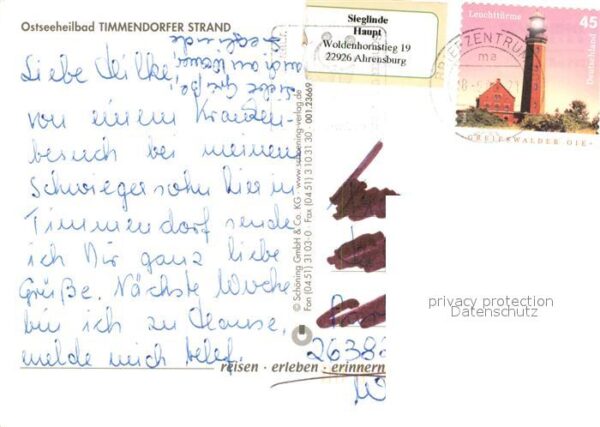 Ostseeheilbad TIMMENDORFER STRAND
Liebe
von einem Kranken-
besuch bei meinem
Schwiegersohn hier in
Timmendorf sende
ich Dir ganz liebe
Grüße. Nächste Woche
bin ich zu Hause,
melde mich telef.
Liebe Grüße!
Sieglinde
© Schöning GmbH & Co. KG · www.schoening-verlag.de
Fon (04 51) 31 03-0 · Fax (04 51) 3 10 31 30 · 001.23669
reisen · erleben · erinnern
Sieglinde
Haupt
Woldenhornstieg 19
22926 Ahrensburg
BRIEFZENTRUM
ma
Leuchttürme
45
Deutschland
GREIFSWALDER OIE
privacy protection
Datenschutz